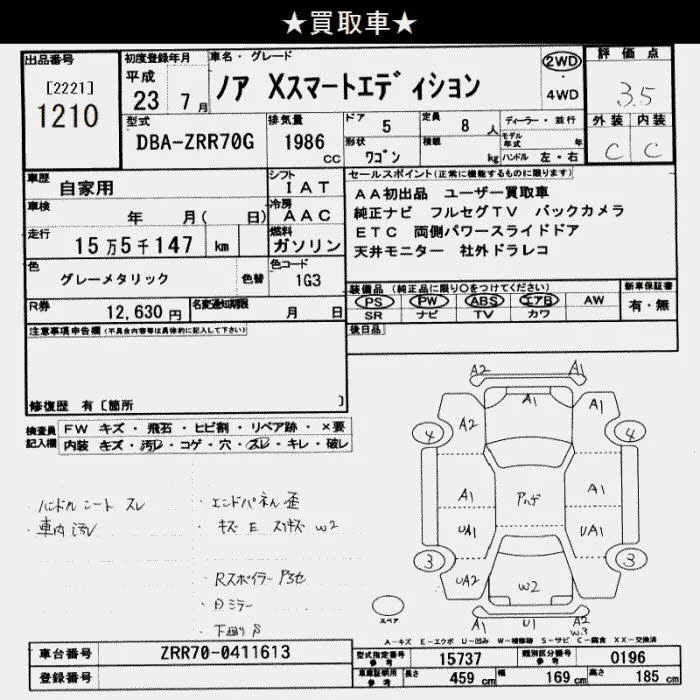 ★買取車★
出品番号
[2221]
1210
初度登録年月
平成
23 7月
車名・グレード
ノア Xスマートエディション
2WD
・
4WD
評価点
3.5
外装 内装
C C
型式
DBA-ZRR70G
排気量
1986
cc
ドア
5
定員
8人
形状
ワゴン
積載
kg
ディーラー・並行
モデル年式 年
ハンドル 左・右
車歴
自家用
シフト
IAT
車検
年 月( 日)
冷房
AAC
走行
15万5千147 km
燃料
ガソリン
色
グレーメタリック
色替
色コード
1G3
R券
12,630円
名変通知期限
月 日
セールスポイント(正常に機能するものに限ります)
AA初出品 ユーザー買取車
純正ナビ フルセグTV バックカメラ
ETC 両側パワースライドドア
天井モニター 社外ドラレコ
装備品(純正品に限り○をつけてください)
PS PW ABS エアB AW
SR ナビ TV カワ
新車保証書
有・無
後日品
注意事項申告欄(不具合内容等は具体的に記入して下さい)
修復歴 有〔箇所 〕
検査員
記入欄
FW キズ・飛石・ヒビ割・リペア跡・×要
内装 キズ・汚レ・コゲ・穴・スレ・キレ・破レ
・ハンドル シート スレ
・車内 汚レ
・エンドパネル 歪
・キズ E W2
・Rスポイラー
・ミラー
・下廻り
A2 A1
A1
A2 A1
4 4
A1 A1
UA1 UA1
3 3
UA2
A1
W2
U1 A2
W3
スペア
A-キズ E-エクボ U-凹み W-補修跡 S-サビ C-腐食 XX-交換済
車台番号
ZRR70-0411613
登録番号
型式指定番号
参考
15737
類別区分番号
参考
0196
車両証明用
参考
長さ
459cm
幅
169cm
高さ
185cm